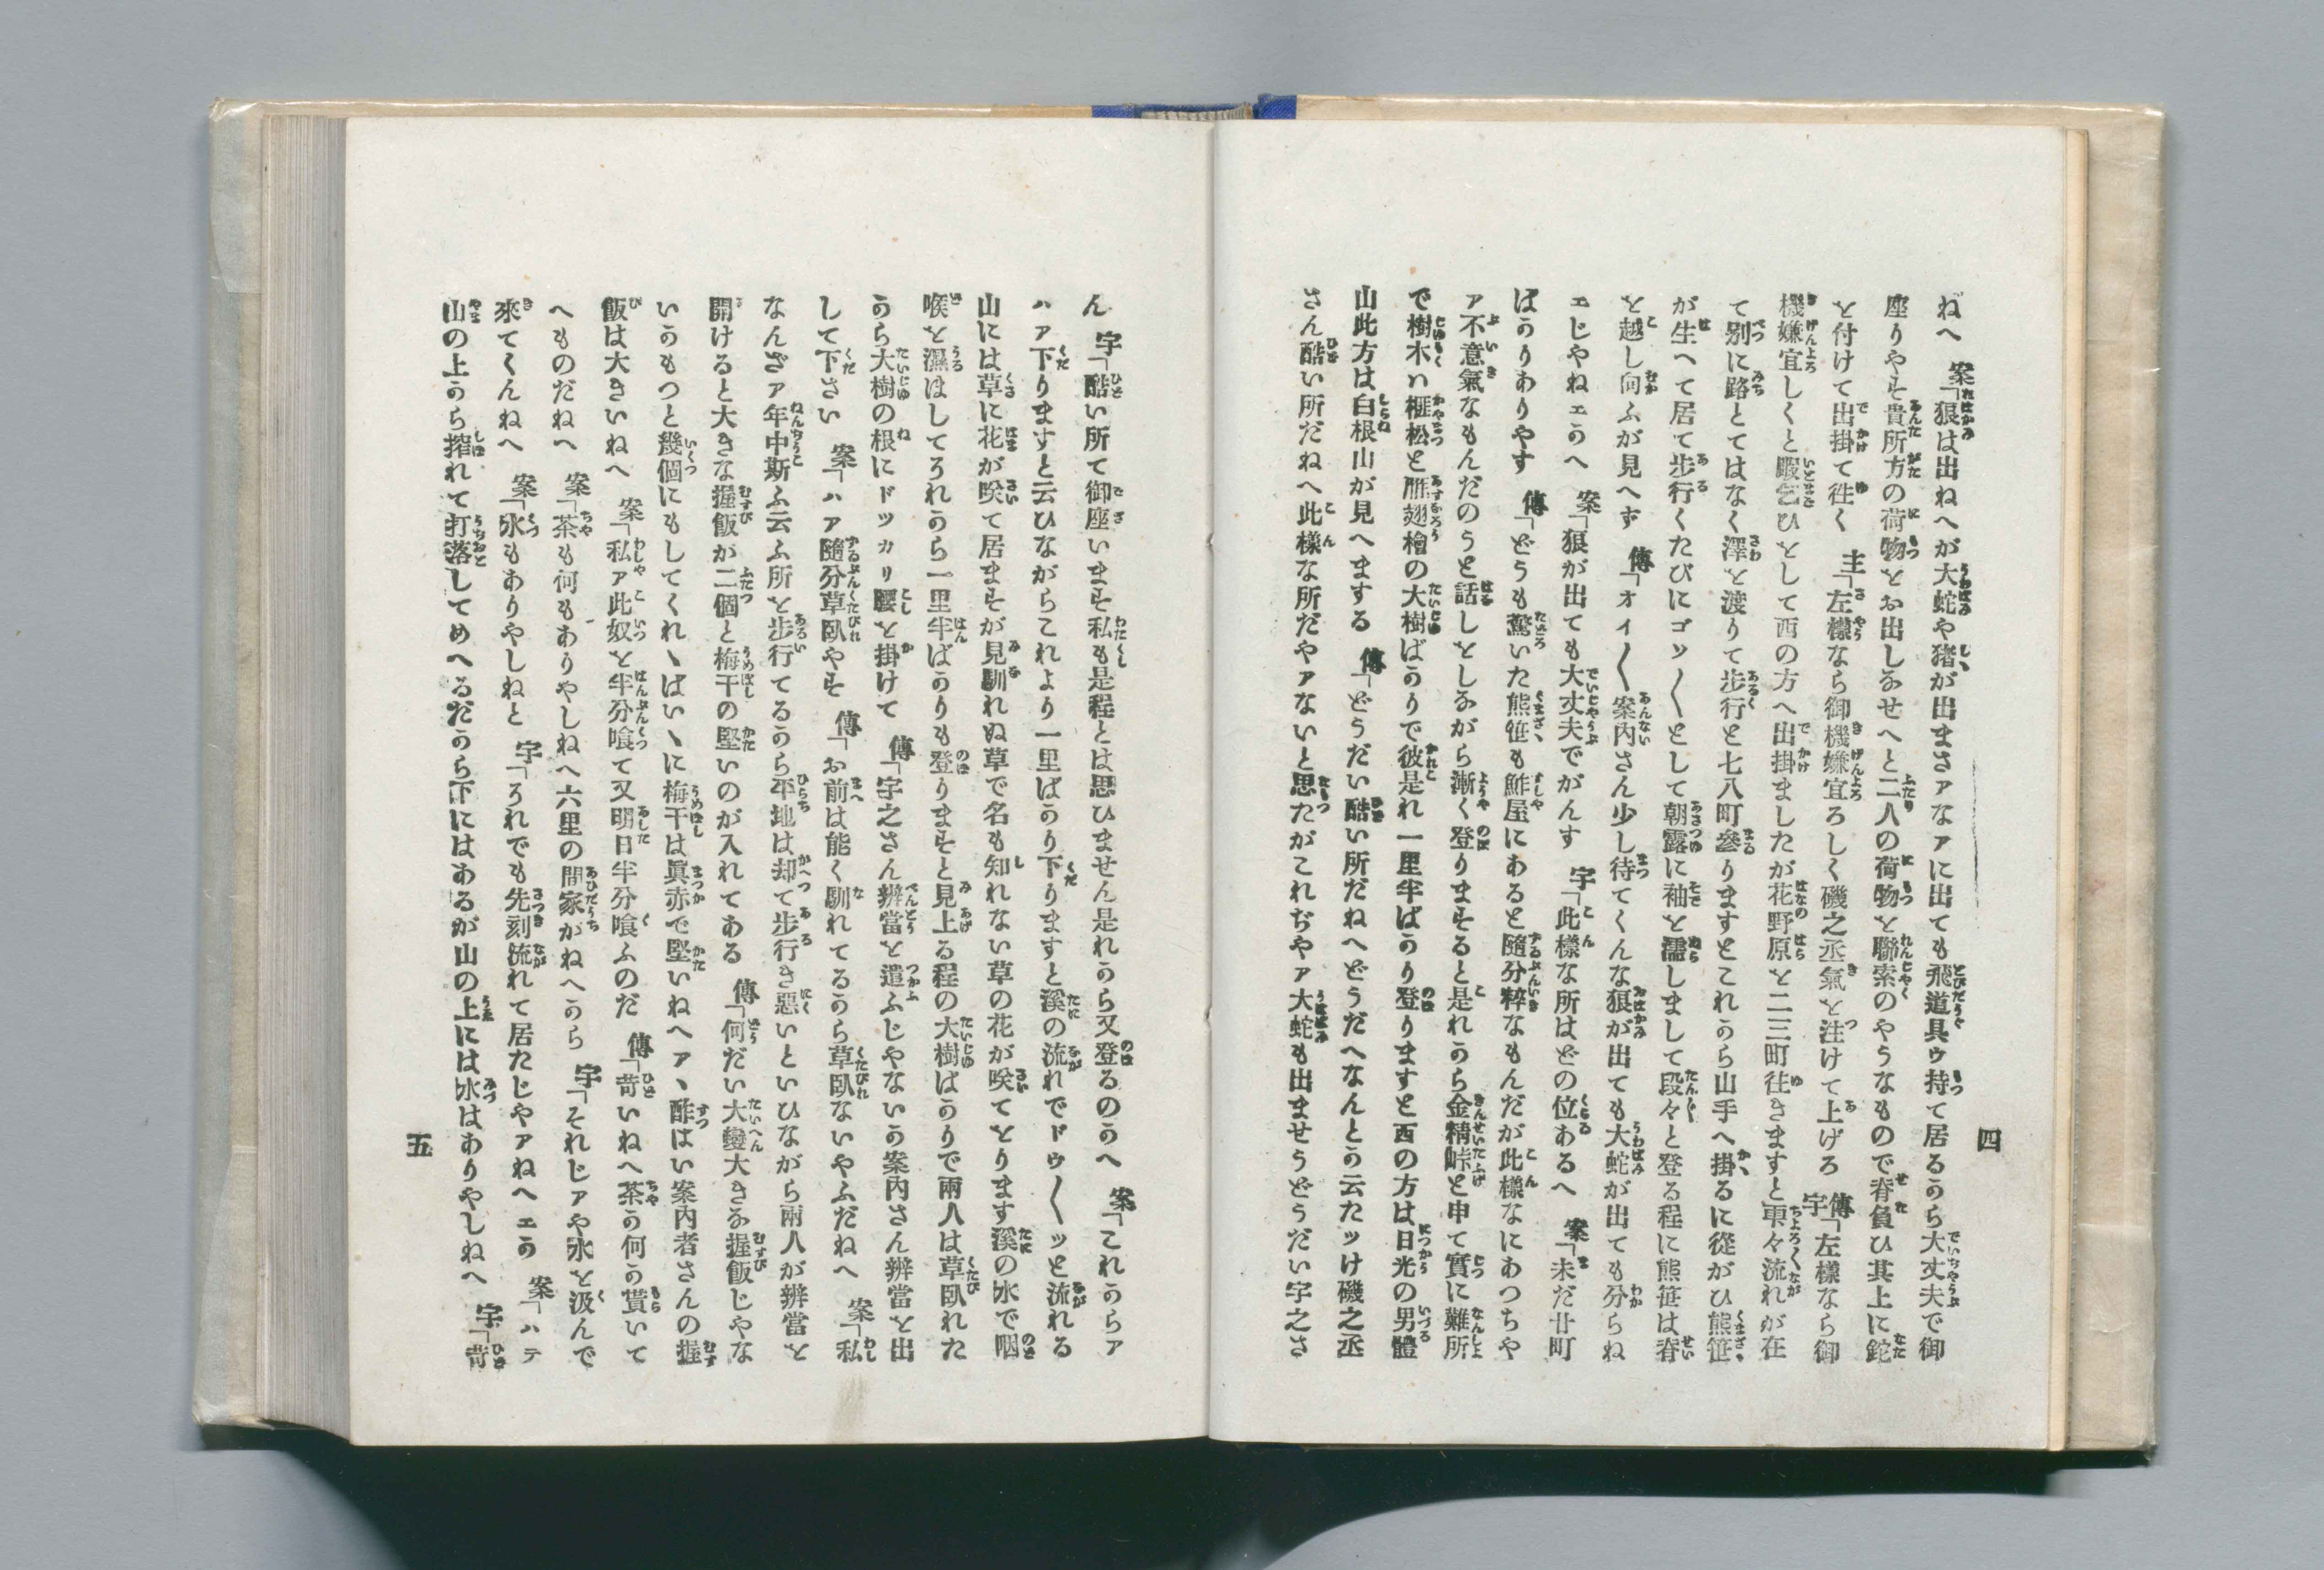 ねへ　案「狼は出ねへが大蛇や猪が出まさアなアに出ても飛道具ウ持て居るから大丈夫で御
座りやす貴所方の荷物をお出しなせへと二人の荷物を聯索のやうなもので脊負ひ其上に鉈
を付けて出掛て徃く　主「左樣なら御機嫌宜ろしく磯之丞氣を注けて上げろ　傳宇「左樣なら御
機嫌宜しくと暇乞ひをして西の方へ出掛ましたが花野原を二三町徃きますと耎々流れが在
て別に路とてはなく澤を渡りて步行と七八町參りますとこれから山手へ掛るに從がひ熊笹
が生へて居て步行くたびにゴソ〳〵として朝露に袖を濡しまして段々と登る程に熊笹は脊
を越し向ふが見へず　傳「オイ〳〵案內さん少し待てくんな狼が出ても大蛇が出ても分らね
エじやねエかへ　案「狼が出ても大丈夫でがんす　宇「此樣な所はどの位あるへ　案「未だ廿町
ばかりありやす　傳「どうも驚いた熊笹も鮓屋にあると隨分粹なもんだが此樣なにあつちや
ア不意氣なもんだのうと話しをしながら漸く登りまするど是れから金精峠と申て實に難所
で樹木ハ榧松と羅翅檜の大樹ばかりで彼是れ一里半ばかり登りますと西の方は日光の男體
山此方は白根山が見へまする　傳「どうだい酷い所だねへどうだへなんとか云たッけ磯之丞
さん酷い所だねへ此樣な所だやアないと思たがこれぢやア大蛇も出ませうどうだい宇之さ
四
ん　宇「酷い所て御座いまする私も是程とは思ひません是れから又登るのかへ　案「これからア
ハア下りますと云ひながらこれより一里ばかり下りますと溪の流れでドウ〳〵ッと流れる
山には草に花が咲て居ますが見馴れぬ草で名も知れない草の花が咲てをります溪の水で咽
喉を濕はしてそれから一里半ばかりも登りますと見上る程の大樹ばかりで兩人は草臥れた
から大樹の根にドッカリ腰を掛けて　傳「宇之さん辨當を遣ふじやないか案內さん辨當を出
して下さい　案「ハア隨分草臥やす　傳「お前は能く馴れてるから草臥ないやふだねへ　案「私
なんざア年中斯ふ云ふ所を步行てるから平地は却て步行き惡いといひながら兩人が辨當を
開けると大きな握飯が二個と梅干の堅いのが入れてある　傳「何だい大變大きな握飯じやな
いかもつと幾個にもしてくれゝばいゝに梅干は眞赤で堅いねへアヽ酢はい案內者さんの握
飯は大きいねへ　案「私ア此奴を半分喰て又明日半分喰ふのだ　傳「苛いねへ茶か何か貰いて
へものだねへ　案「茶も何もありやしねへ六里の間家がねへから　宇「それじアや水を汲んで
來てくんねへ　案「水もありやしねと　宇「それでも先刻流れて居たじやアねへエか　案「ハテ
山の上から搾れて打落してめへるだから下にはあるが山の上には水はありやしねへ　宇「苛
五